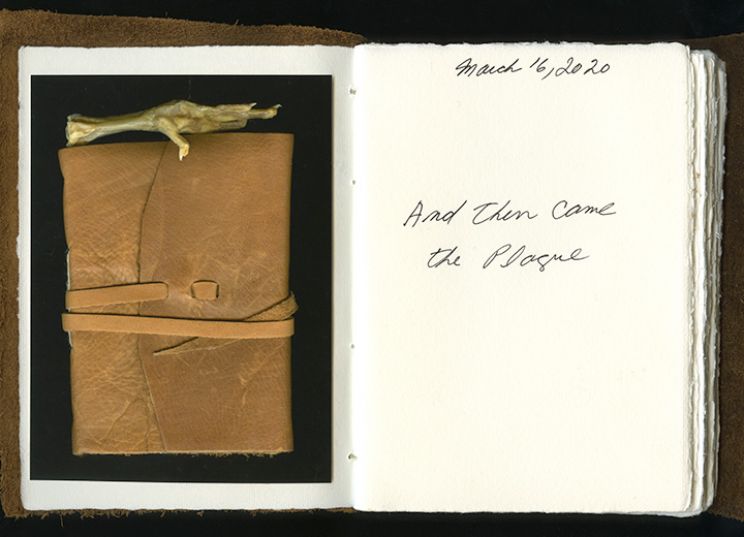 March 16, 2020
And then came
the Plague